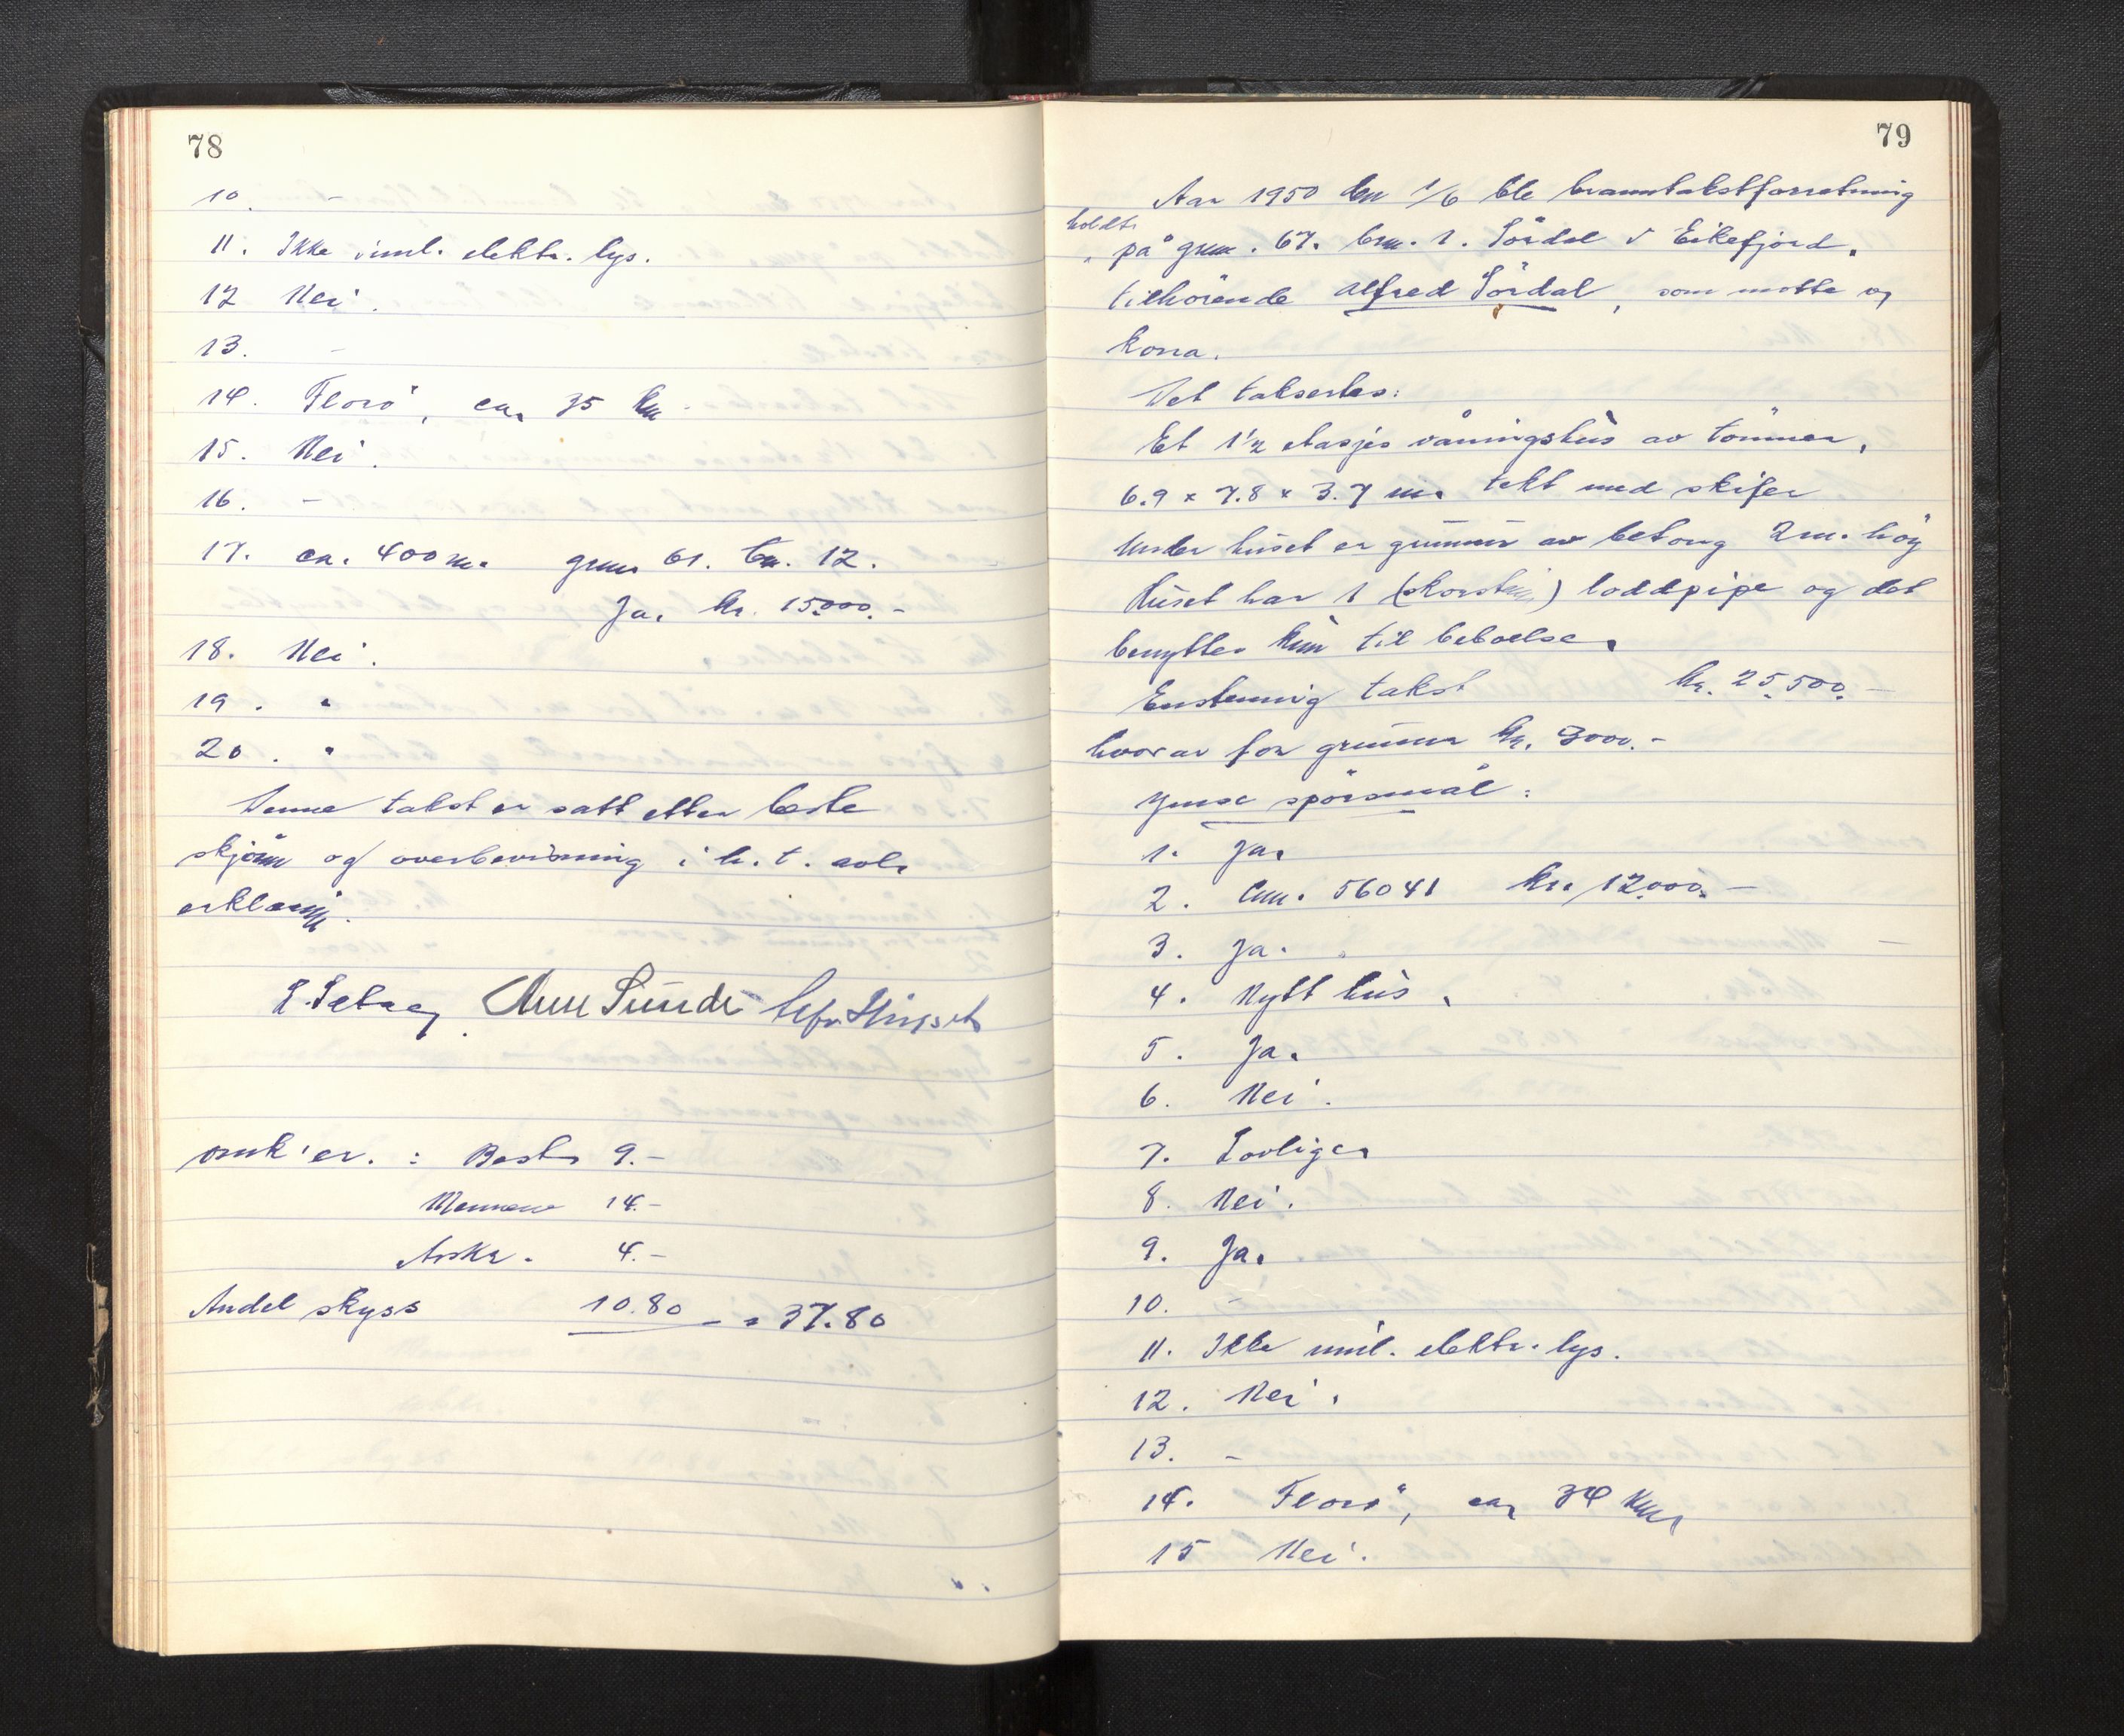 78
10. -
11. Ikke innl. elektr. lys.
12 Nei.
13. -
14. Florø, ca. 35 km
15. Nei.
16. -
17. ca. 400 m. gnr. 61. bn. 12.
Ja. kr. 15.000.-
18. Nei.
19. "
20. "
Denne takst er satt etter beste
skjønn og overbevisning i h. t. avl.
erklæring.
Sunde
omk'er. : Best. 9.-
Mennene 14.-
Avskr. 4.-
Andel skyss 10.80 = 37.80
79
Aar 1950 den 1/6 ble branntakstforretning
holdt
på gnr. 67. bnr. 1. Sørdal i Eikefjord.
tilhørende Alfred Sørdal, som møtte og
kona.
Det takseres:
Et 1½ etasjes våningshus av tømmer.
6.9 x 7.8 x 3.7 m. tekt med skifer
Under huset er grunnur av betong 2 m. høy
Huset har 1 (skorstein) loddpipe og det
benyttes kun til beboelse.
Enstemmig takst kr. 25.500.-
hvorav for grunnur kr. 3000.-
Ymse spørsmål:
1. Ja.
2. Lnr. 56041 kr. 12.000.-
3. Ja.
4. Nytt hus.
5. Ja.
6. Nei.
7. Lovlige.
8. Nei.
9. Ja.
10. -
11. Ikke innl. elektr. lys.
12. Nei.
13. -
14. Florø, ca. 34 km.
15 Nei.